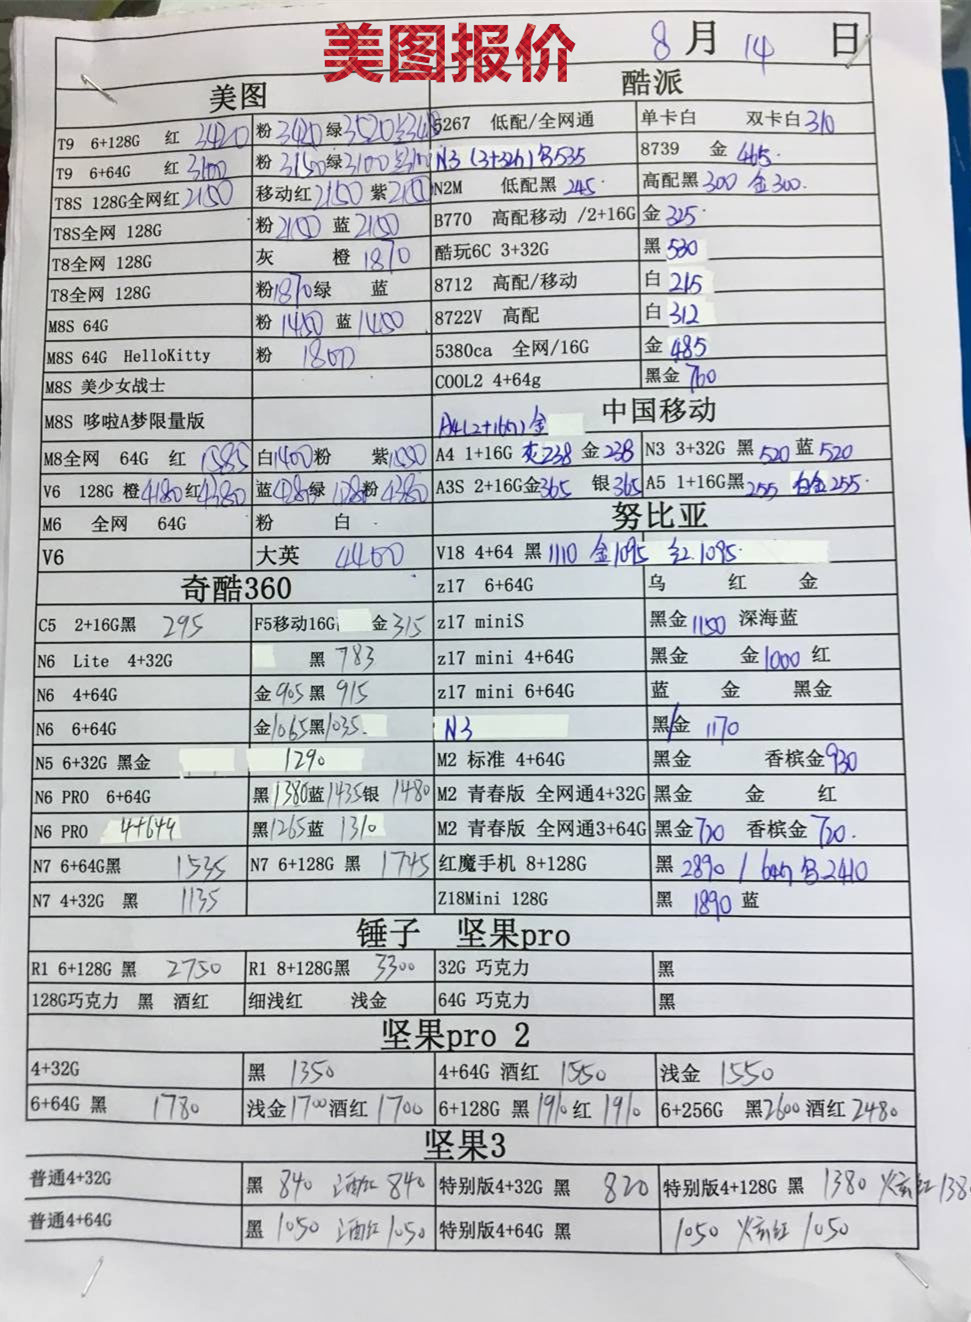 美图报价
8月14日
美图
酷派
T9 6+128G 红 3420 粉 3420 绿 3520
5267 低配/全网通 单卡白 双卡白 310
T9 6+64G 红 3100 粉 3150 绿 3100
N3 (3+32G) 8739 金 465
T8S 128G全网红 2150 移动红 2150 紫 2150
N2M 低配黑 245 高配黑 300 金 300
T8S全网 128G 粉 2150 蓝 2150
B770 高配移动 /2+16G 金 325
T8全网 128G 灰 橙 1870
酷玩6C 3+32G 黑 530
T8全网 128G 粉 1870 绿 蓝
8712 高配/移动 白 215
M8S 64G 粉 1450 蓝 1450
8722V 高配 白 312
M8S 64G HelloKitty 粉 1800
5380ca 全网/16G 金 485
M8S 美少女战士
COOL2 4+64g 黑金 760
M8S 哆啦A梦限量版
A4(2+16G)金
中国移动
M8全网 64G 红 白1400 粉 紫
A4 1+16G 灰238 金 238 N3 3+32G 黑 520 蓝 520
V6 128G 橙 4180 红 4380 蓝 绿 粉 4380
A3S 2+16G金365 银 365 A5 1+16G黑 255 白金 255
M6 全网 64G 粉 白
努比亚
V6 大英 4400
V18 4+64 黑 1110 金 1095 红 1095
奇酷360
z17 6+64G 乌 红 金
C5 2+16G黑 295 F5移动16G 金 315
z17 miniS 黑金 1150 深海蓝
N6 Lite 4+32G 黑 783
z17 mini 4+64G 黑金 金 1000 红
N6 4+64G 金 905 黑 915
z17 mini 6+64G 蓝 金 黑金
N6 6+64G 金 1065 黑 1035
N3 黑/金 1170
N5 6+32G 黑金 1290
M2 标准 4+64G 黑金 香槟金 930
N6 PRO 6+64G 黑 1380 蓝 1435 银 1480
M2 青春版 全网通4+32G 黑金 金 红
N6 PRO 4+64G 黑 1265 蓝 1310
M2 青春版 全网通3+64G 黑金 720 香槟金 720
N7 6+64G黑 1535 N7 6+128G 黑 1745
红魔手机 8+128G 黑 2890 / 64G 2410
N7 4+32G 黑 1135
Z18Mini 128G 黑 1890 蓝
锤子 坚果pro
R1 6+128G 黑 2750 R1 8+128G黑 3300 32G 巧克力 黑
128G巧克力 黑 酒红 细浅红 浅金 64G 巧克力 黑
坚果pro 2
4+32G 黑 1350 4+64G 酒红 1550 浅金 1550
6+64G 黑 1780 浅金 1700 酒红 1700 6+128G 黑 1910 红 1910 6+256G 黑 2600 酒红 2480
坚果3
普通4+32G 黑 840 酒红 840 特别版4+32G 黑 820 特别版4+128G 黑 1380 炫红 138
普通4+64G 黑 1050 酒红 1050 特别版4+64G 黑 1050 炫红 1050